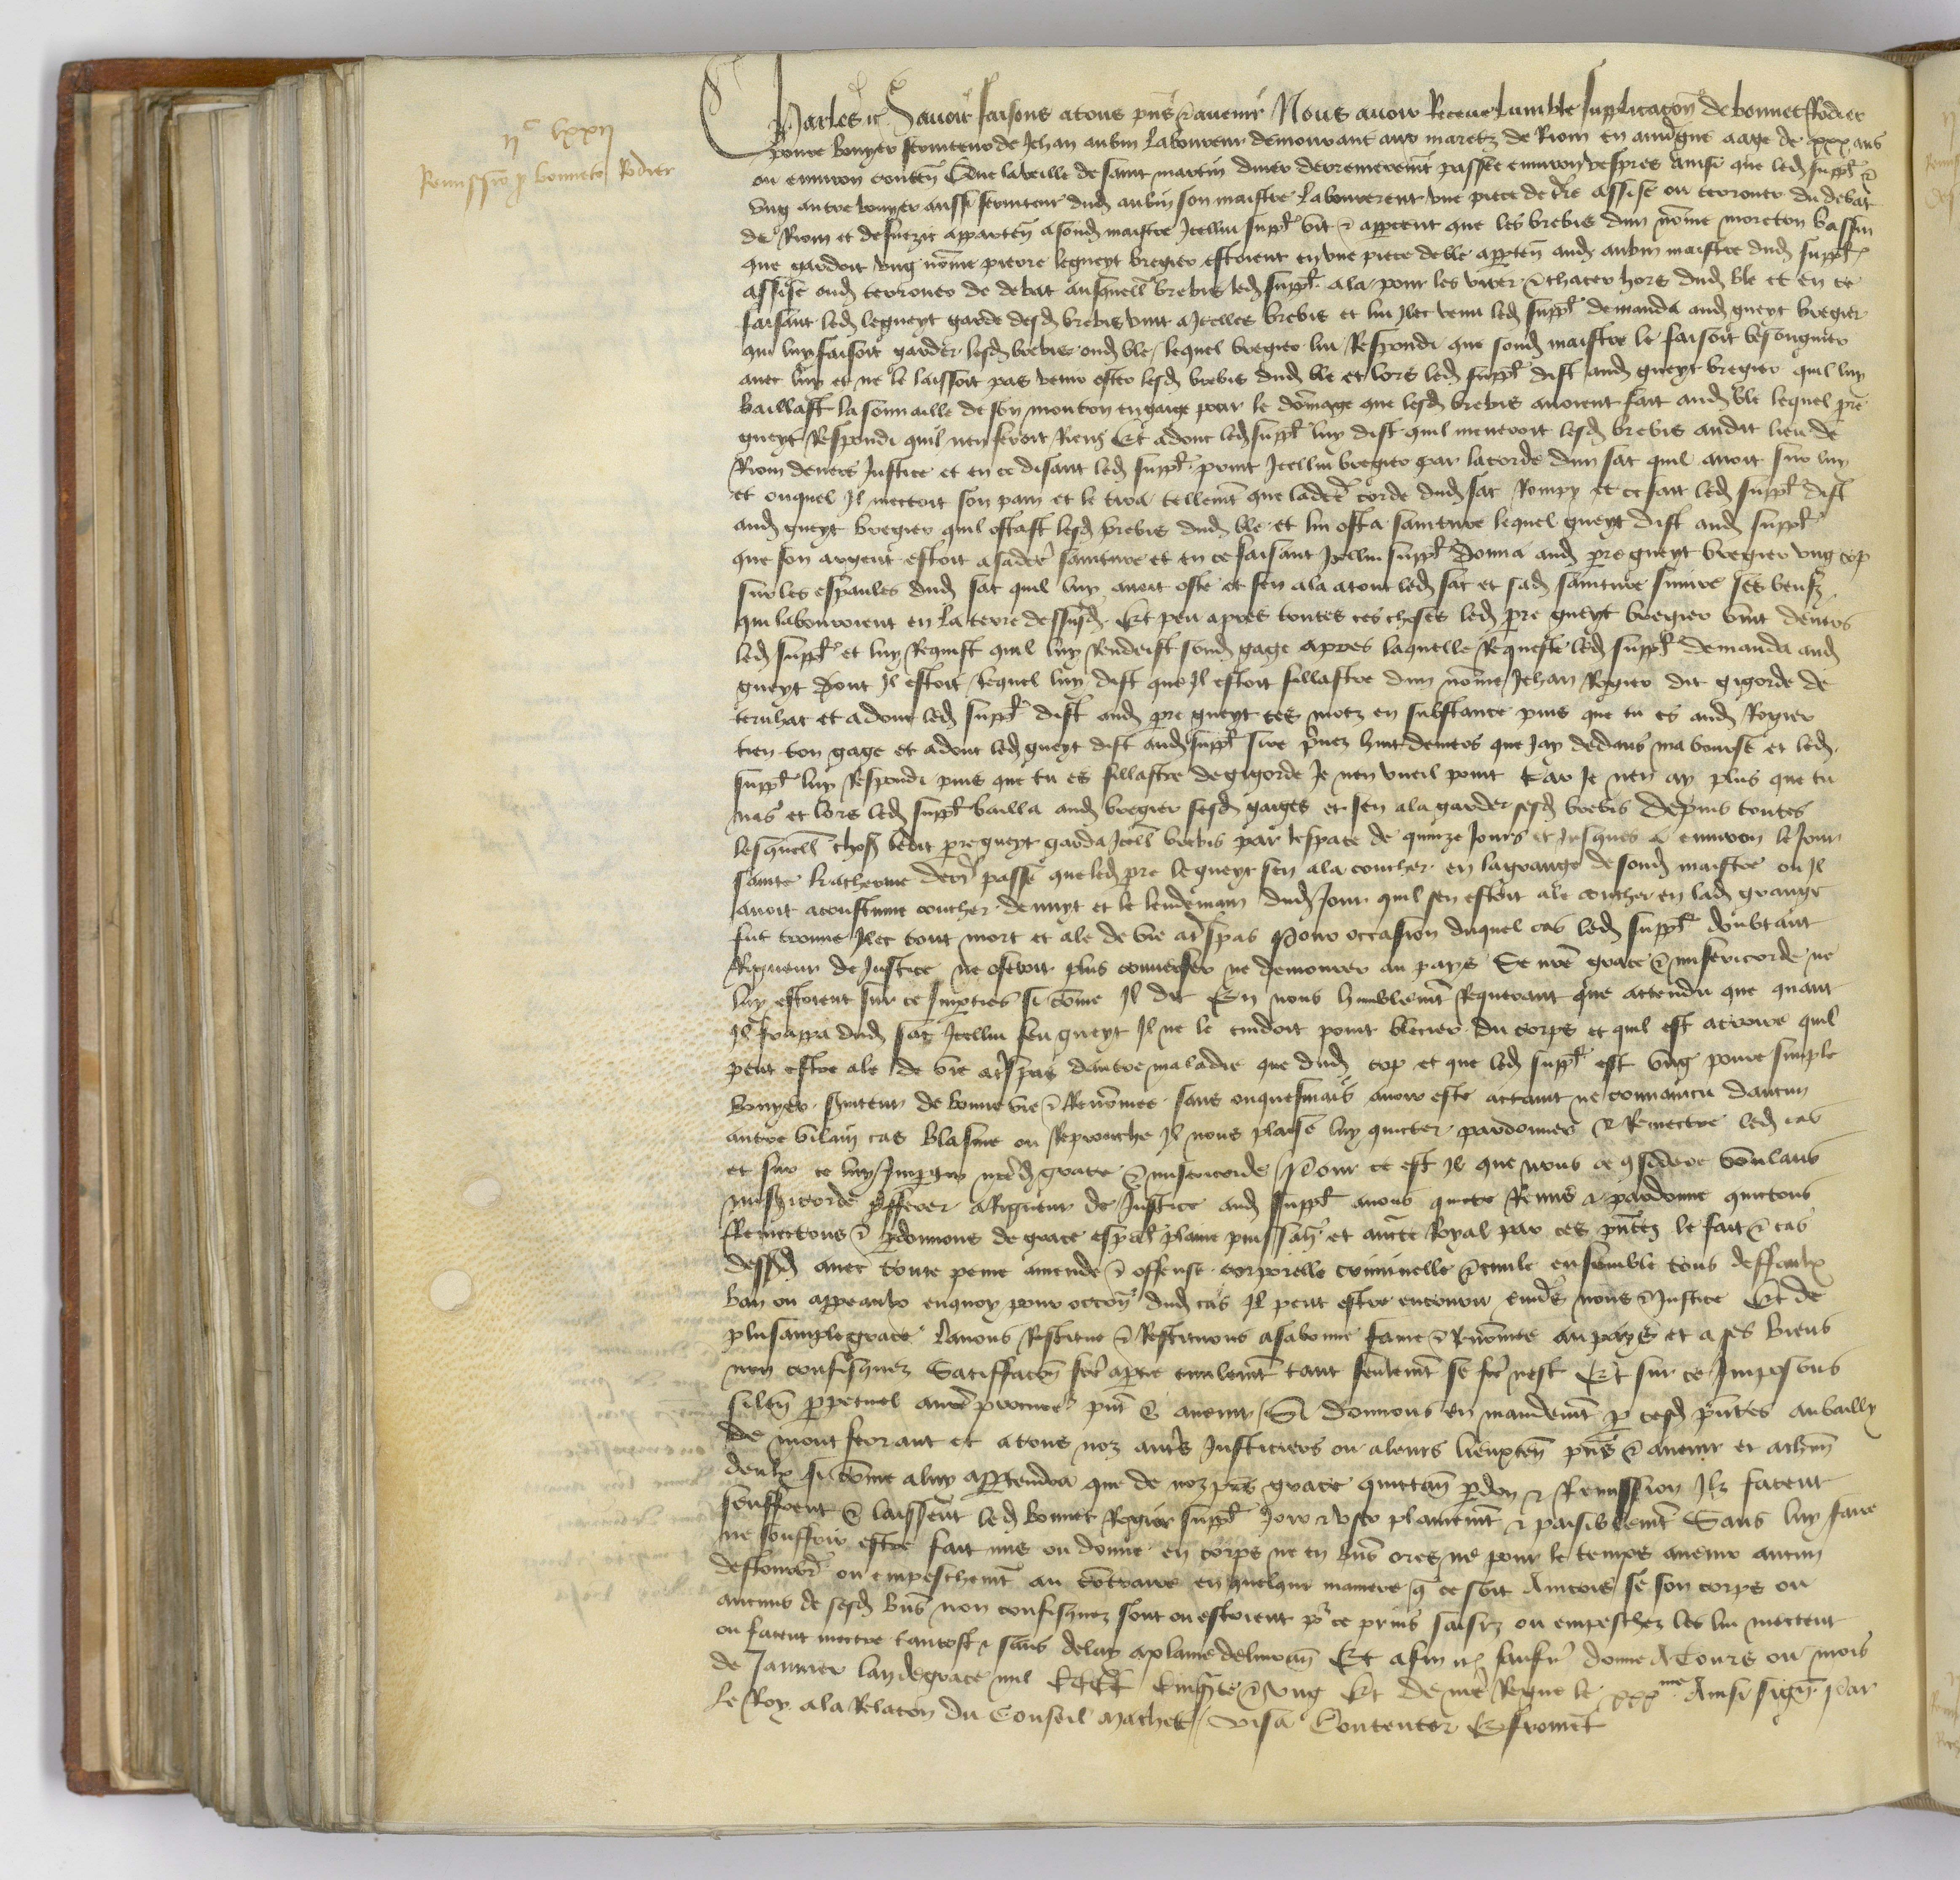 nc lxxii
Remission p bonneto Rodier
Charles etc Savoir faisons a tous pns et avenir Nous avoir Receue lumble supplicacon de bonnet Rodier
povre bouyer serviteur de Jehan aubin laboureur demourant aux maretz de Riom en auvgne aage de xxx ans
ou environ conten Que la veille de saint martin diver derrenierement passee environ vespres Ainsi que led suppl et
Ung autre bouyer aussi serviteur dud aubin son maistre labouroient une piece de tre assise ou terrouer du debat
de Riom et de apparten a sond maistre Icellui suppl vit et apperceut que les brebis dun nome moreton bassin
que gardoit ung nome pierre legueyt bregier estoient en une piece de ble apparten aud aubin maistre dud suppl
assise oud terrouer de debat ausquell brebis led suppl ala pour les virer et chacer hors dud ble et en ce
faisant led legueyt garde desd brebis vint a Icelles brebis et lui Ilec venu led suppl demanda aud gueyt bregier
qui luy faisoit garder lesd brebis oud ble lequel bregier lui Respondi que sond maistre le faisoit besongnier
avec luy et ne le laissoit pas venir oster lesd brebis dud ble et lors led suppl dist aud gueyt bregier quil luy
baillast la sonnaille de son mouton en gaige pour le domage que lesd brebis avoient fait aud ble lequel pre
gueyt Respondi quil nen feroit Riens Et adonc led suppl luy dist quil meneroit lesd brebis audit lieu de
Riom devers Justice et en ce disant led suppl print Icellui bregier par la corde dun sac quil avoit sur luy
et ouquel Il mectoit son pain et le tira tellemt que ladcte corde dud sac Rompy et ce fait led suppl dist
aud gueyt bregier quil ostast lesd brebis dud ble et lui osta saincture lequel gueyt dist aud suppl
que son argent estoit a sadcte saincture et en ce faisant Icellui suppl donna aud pre gueyt bregier ung cop
sur les espaules dud sac quil luy avoit oste et sen ala atout led sac et sad saincture suivre ses beufz
qui labouroient en la terre dessusd Et peu apres toutes ces choses led pre gueyt bregier vint devers
led suppl et luy Requist quil luy Rendeist sond gage apres laquelle Requeste led suppl demanda aud
gueyt dont Il estoit lequel luy dist que Il estoit fillastre dun nome Jehan Rogier dit gigorde de
teruhac et adonc led suppl dist aud pre gueyt ces motz en substance puis que tu es aud Rogier
tien ton gage et adonc led gueyt dist aud suppl sire prenez huit deniers que Jay dedans ma bourse et led
suppl luy Respondi puis que tu es fillastre de gigorde Je nen vueil point Car Je nen ay plus que tu
nas et lors led suppl bailla aud bregier sesd gaiges et sen ala garder sesd brebis Depuis toutes
lesquell choses ledit pre gueyt garda Icell brebis par lespace de quinze Jours et Jusques a environ le Jour
sainte katherine dern passe que led pre legueyt sen ala coucher en la grange de sond maistre ou Il
avoit acoustume coucher de nuyt et le lendemain dud Jour quil sen estoit ale coucher en lad grange
fut trouve Ilec tout mort et ale de vie a trespas Pour occasion duquel cas led suppl doubtant
Rigueur de Justice ne oseroit plus converser ne demourer au pays Se nre grace et misericorde ne
luy estoient sur ce Imparties si come Il dit En nous humblemt Requerant que attendu que quant
Il frappa dud sac Icellui feu gueyt Il ne le cuidoit point blecier du corps et quil est a croire quil
peut estre ale de vie a trespas dautre maladie que dud cop et que led suppl est ung povre simple
bouyer serviteur de bonne vie et Renomee sans onquesmais avoir este actaint ne convaincu daucun
autre vilain cas blasme ou Reprouche Il nous plaise luy quicter pardonner et Remectre led cas
et sur ce luy Impartir nred grace et misericorde Pour ce est Il que nous ce consideré voulans
misericorde prefferer a Rigueur de Justice aud suppl avons quicte Remis et pardonne quictons
Remectons et pardonnons de grace especl plaine puissan et aucte Royal par ces pntes le fait et cas
dessusd avec toute peine amende et offense corporelle criminelle et civile ensemble tous deffaulx
ban ou appeaulx enquoy pour occon dud cas Il peut estre encouru envers nous et Justice Et de
plus ample grace lavons Restitue et Restituons a sa bonne fame et Renomee au pays et a ses biens
non confisquez Satisfacon fte a ptie civilemt tant seulemt se fte nest Et sur ce Imposons
silen perpetuel a nre procureur pnt et avenir Si donnons en mandemt p cesd pntes au bailly
de montferrant et a tous noz autres Justiciers ou a leurs lieuxten pns et avenir et a chun
deulx si come a luy appartendra que de noz pns grace quictan pardon et Remission Ilz facent
seuffrent et laissent led bonnet Rogier suppl Joir et user plainemt et paisiblemt Sans luy faire
ne souffrir estre fait mis ou donne en corps ne en biens ores ne pour le temps avenir aucun
destourbr ou empeschemt au contraire en quelque maniere q ce soit Aincois se son corps ou
aucuns de sesd biens non confisquez sont ou estoient por ce prins saisiz ou empeschez les lui mectent
ou facent mectre tantost et sans delay a plaine delivran Et afin etc sauf etc donne A Tours ou mois
de Janvier lan de grace mil CCCC cinqte et ung Et de nre Regne le xxxme Ainsi signe Par
le Roy a la Relacon du Conseil Machet Visa Contentor E froment